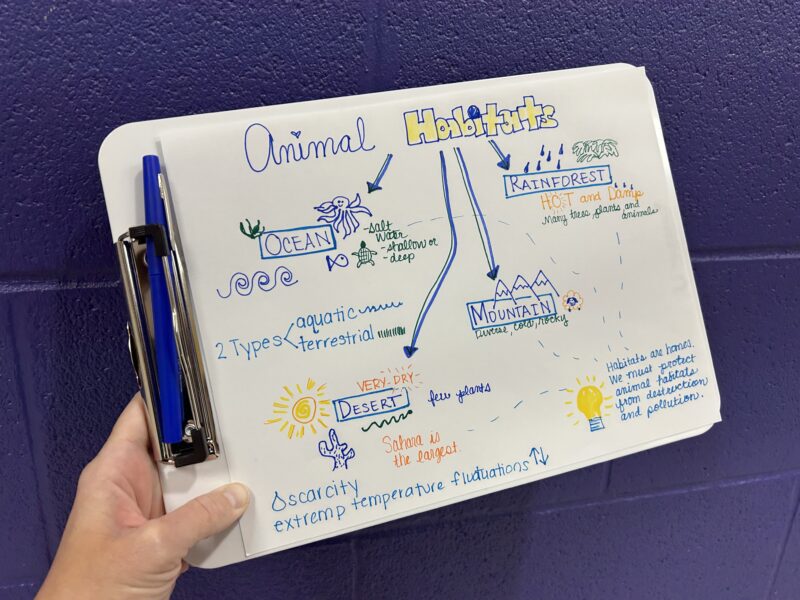 Animal Habitats
RAINFOREST
HOT and Damp
Many trees, plants and
animals
OCEAN
-salt
water
-shallow or
-deep
MOUNTAIN
Diverse, cold, rocky
2 Types
aquatic
terrestrial
VERY-DRY
DESERT
few plants
Sahara is
the largest.
Habitats are homes.
We must protect
animal habitats
from destruction
and pollution.
scarcity
extremp temperature fluctuations